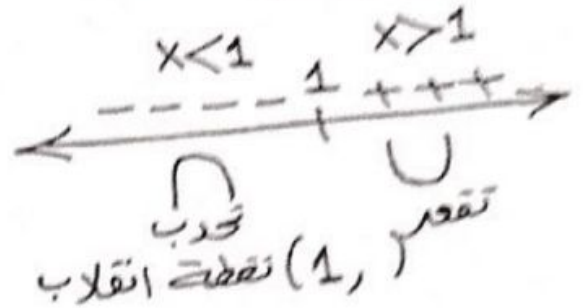 x<1 x>1
- - - - 1 + + + -
∩ ∪
تحدب تقعر
(1, ) نقطة انقلاب